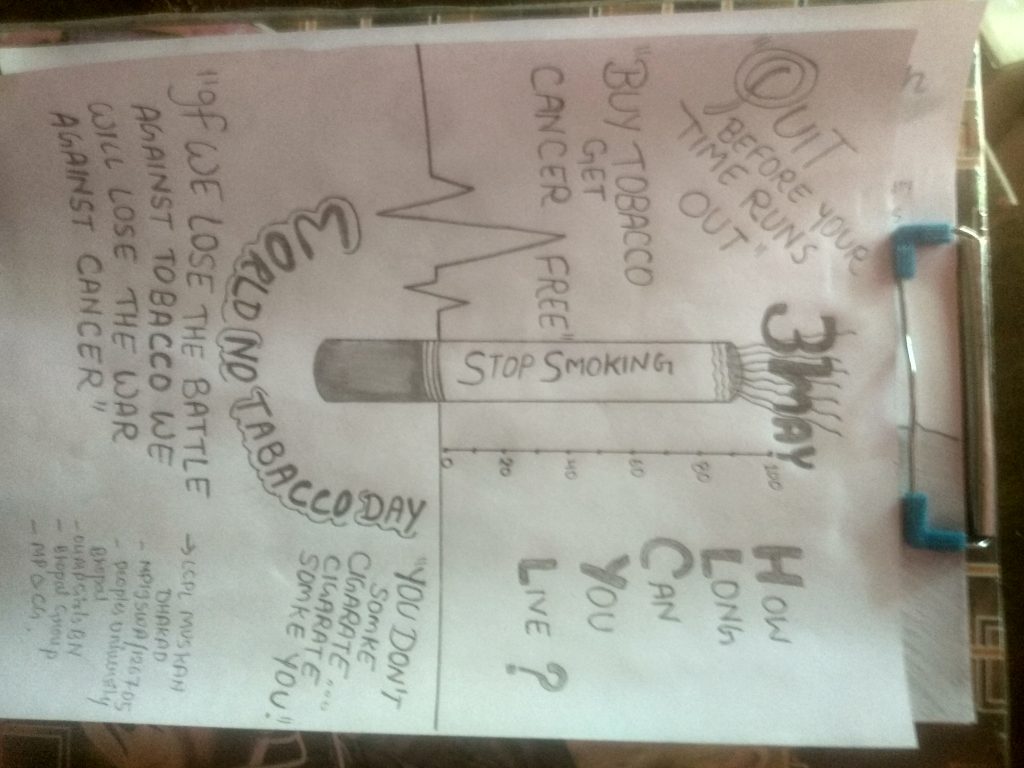 "QUIT
BEFORE YOUR
TIME RUNS
OUT"
31 MAY
"BUY TOBACCO
GET
CANCER FREE"
STOP SMOKING
100
80
60
40
20
0
HOW
LONG
CAN
YOU
LIVE ?
WORLD NO TABACCO DAY
"YOU DON'T
SOMKE
CIGARATE...
CIGARATE
SOMKE YOU!"
"If WE LOSE THE BATTLE
AGAINST TOBACCO WE
WILL LOSE THE WAR
AGAINST CANCER"
→ MUSKAN
DHAKAD
- PEOPLE UNIVERSITY
- BN
- GROUP
- MP & CG.